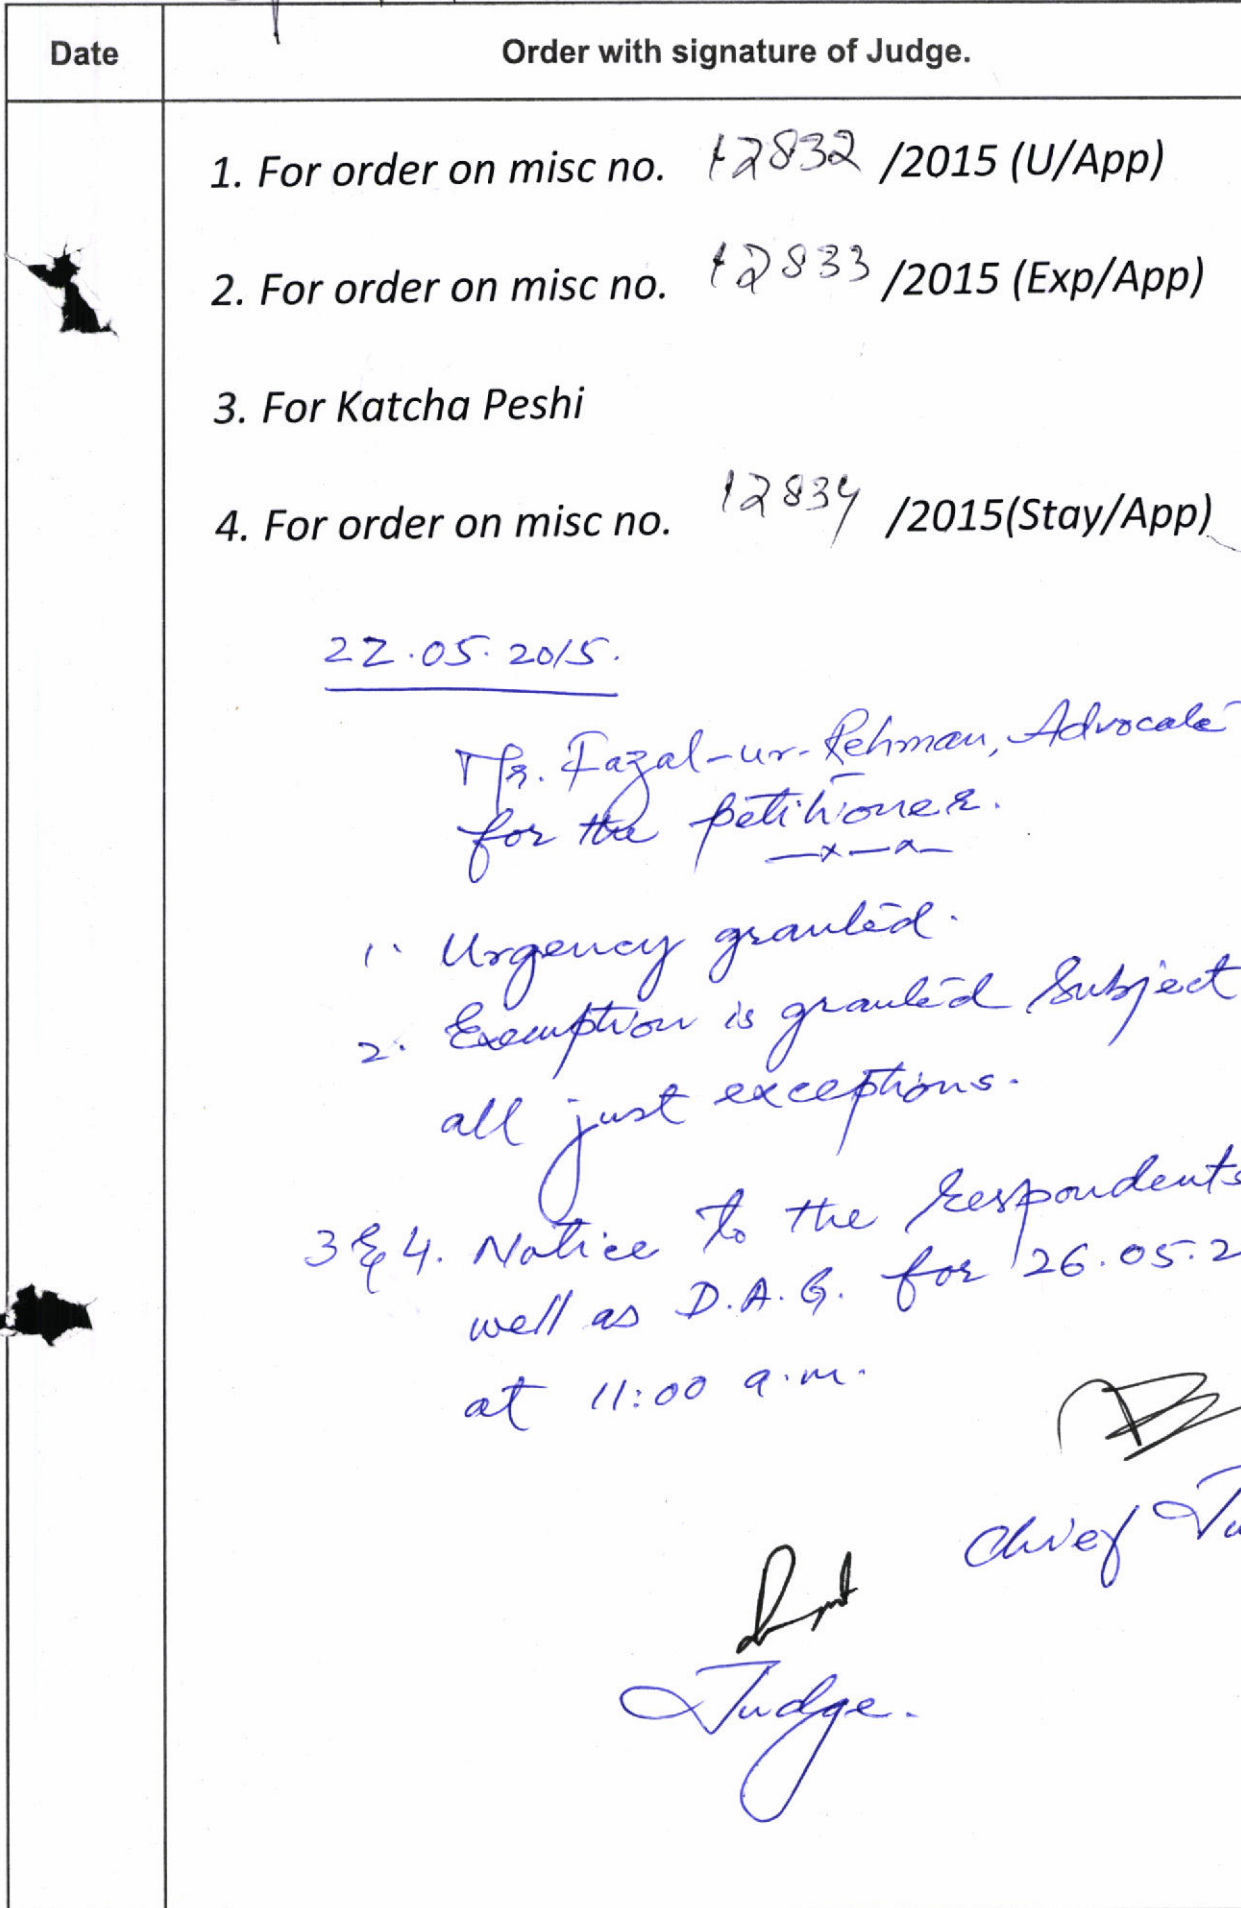 Date Order with signature of Judge.
1. For order on misc no. 12832 /2015 (U/App)
2. For order on misc no. 12833 /2015 (Exp/App)
3. For Katcha Peshi
4. For order on misc no. 12834 /2015(Stay/App)
22.05.2015.
Mr. Fazal-ur-Rehman, Advocate
for the petitioner.
—x—x—
1. Urgency granted.
2. Exemption is granted subject
all just exceptions.
3 & 4. Notice to the respondents
well as D.A.G. for 26.05.2
at 11:00 a.m.
Chief Ju
Judge.